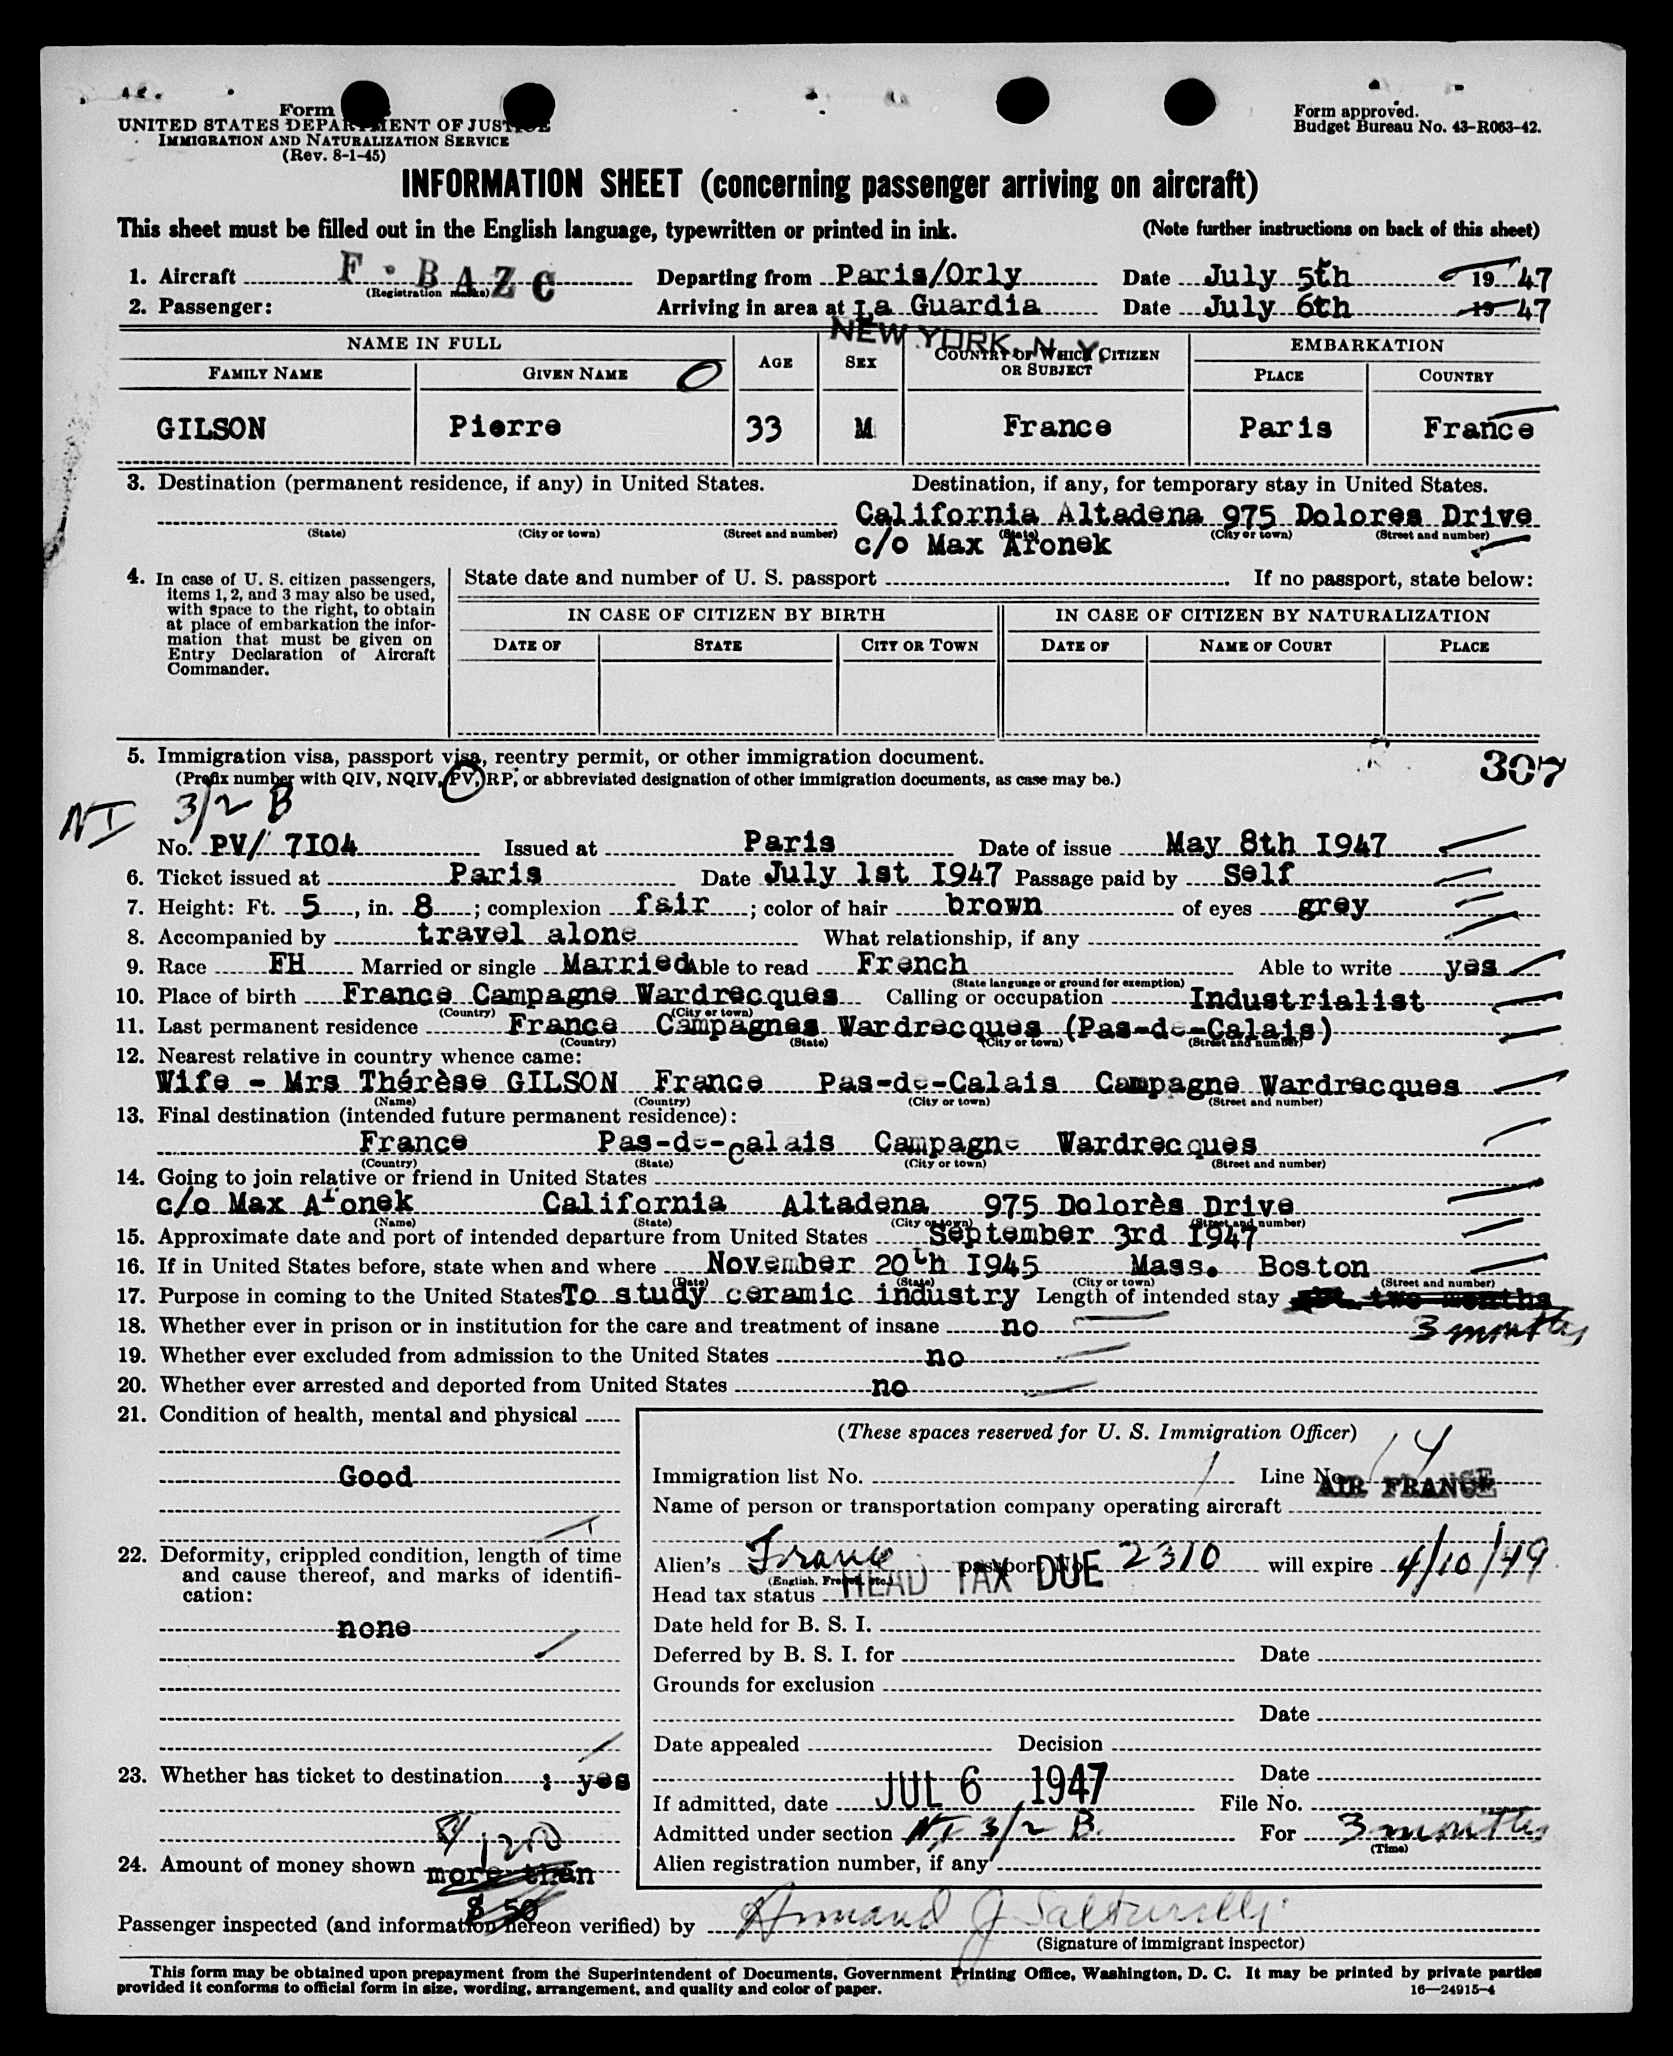 Form
UNITED STATES DEPARTMENT OF JUSTICE
IMMIGRATION AND NATURALIZATION SERVICE
(Rev. 8-1-45)
Form approved.
Budget Bureau No. 43-R063-42.
INFORMATION SHEET (concerning passenger arriving on aircraft)
This sheet must be filled out in the English language, typewritten or printed in ink. (Note further instructions on back of this sheet)
1. Aircraft F-BAZC Departing from Paris/Orly Date July 5th 1947
(Registration marks)
2. Passenger: Arriving in area at La Guardia Date July 6th 1947
NEW YORK, N. Y.
NAME IN FULL AGE SEX COUNTRY OF WHICH CITIZEN OR SUBJECT EMBARKATION
FAMILY NAME GIVEN NAME PLACE COUNTRY
GILSON Pierre 33 M France Paris France
3. Destination (permanent residence, if any) in United States. Destination, if any, for temporary stay in United States.
California Altadena 975 Dolores Drive
(State) (City or town) (Street and number) (State) (City or town) (Street and number)
c/o Max Aronek
4. In case of U. S. citizen passengers, items 1, 2, and 3 may also be used, with space to the right, to obtain at place of embarkation the information that must be given on Entry Declaration of Aircraft Commander.
State date and number of U. S. passport If no passport, state below:
IN CASE OF CITIZEN BY BIRTH IN CASE OF CITIZEN BY NATURALIZATION
DATE OF STATE CITY OR TOWN DATE OF NAME OF COURT PLACE
5. Immigration visa, passport visa, reentry permit, or other immigration document.
(Prefix number with QIV, NQIV, PV, RP, or abbreviated designation of other immigration documents, as case may be.)
307
NI 3/2 B
No. PV/ 7I04 Issued at Paris Date of issue May 8th I947
6. Ticket issued at Paris Date July 1st I947 Passage paid by Self
7. Height: Ft. 5, in. 8; complexion fair; color of hair brown of eyes grey
8. Accompanied by travel alone What relationship, if any
9. Race FH Married or single Married Able to read French Able to write yes
(State language or ground for exemption)
10. Place of birth France Campagne Wardrecques Calling or occupation Industrialist
(Country) (City or town)
11. Last permanent residence France Campagnes Wardrecques (Pas-de-Calais)
(Country) (State) (City or town) (Street and number)
12. Nearest relative in country whence came:
Wife - Mrs Thérèse GILSON France Pas-de-Calais Campagne Wardrecques
(Name) (Country) (City or town) (Street and number)
13. Final destination (intended future permanent residence):
France Pas-de-Calais Campagne Wardrecques
(Country) (State) (City or town) (Street and number)
14. Going to join relative or friend in United States
c/o Max Aronek California Altadena 975 Dolorès Drive
(Name) (State) (City or town) (Street and number)
15. Approximate date and port of intended departure from United States September 3rd I947
16. If in United States before, state when and where November 20th I945 Mass. Boston
(Date) (State) (City or town) (Street and number)
17. Purpose in coming to the United States To study ceramic industry Length of intended stay two months
3 months
18. Whether ever in prison or in institution for the care and treatment of insane no
19. Whether ever excluded from admission to the United States no
20. Whether ever arrested and deported from United States no
21. Condition of health, mental and physical
Good
22. Deformity, crippled condition, length of time and cause thereof, and marks of identification:
none
23. Whether has ticket to destination : yes
$ 1200
24. Amount of money shown more than
$ 50
(These spaces reserved for U. S. Immigration Officer)
Immigration list No. 1 Line No. 14
AIR FRANCE
Name of person or transportation company operating aircraft
Alien's France passport No. 2310 will expire 4/10/49
(English, French, etc.)
HEAD TAX DUE
Head tax status
Date held for B. S. I.
Deferred by B. S. I. for Date
Grounds for exclusion
Date
Date appealed Decision
Date
If admitted, date JUL 6 1947 File No.
Admitted under section NI 3/2 B. For 3 months
(Time)
Alien registration number, if any
Passenger inspected (and information hereon verified) by Armand J
(Signature of immigrant inspector)
This form may be obtained upon prepayment from the Superintendent of Documents, Government Printing Office, Washington, D. C. It may be printed by private parties
provided it conforms to official form in size, wording, arrangement, and quality and color of paper.
16—24915-4